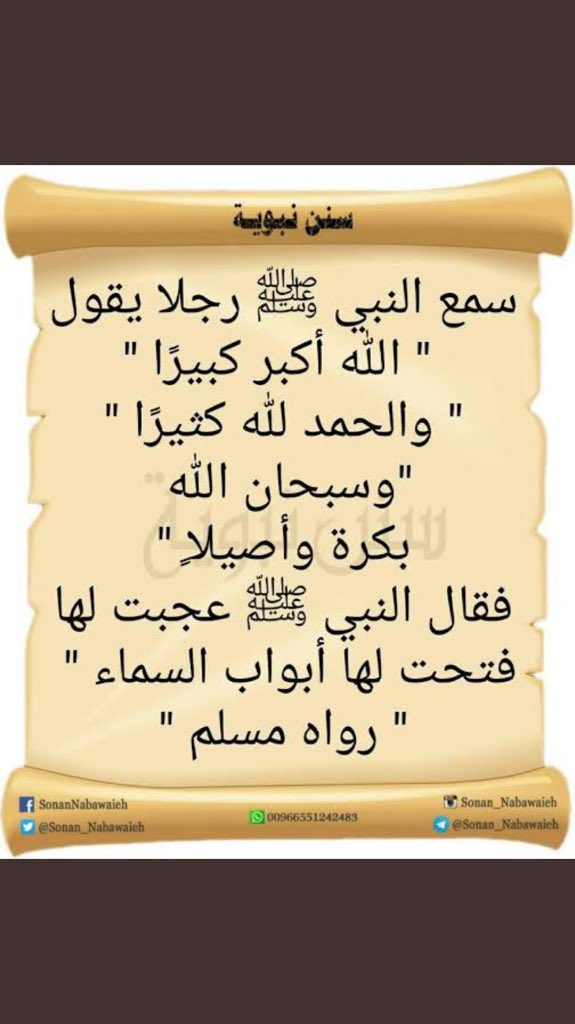 سنن نبوية
سمع النبي ﷺ رجلا يقول
" الله أكبر كبيرًا "
" والحمد لله كثيرًا "
"وسبحان الله
بكرة وأصيلاٍ "
فقال النبي ﷺ عجبت لها
فتحت لها أبواب السماء "
" رواه مسلم "
SonanNabawaieh
@Sonan_Nabawaieh
00966551242483
Sonan_Nabawaieh
@Sonan_Nabawaieh